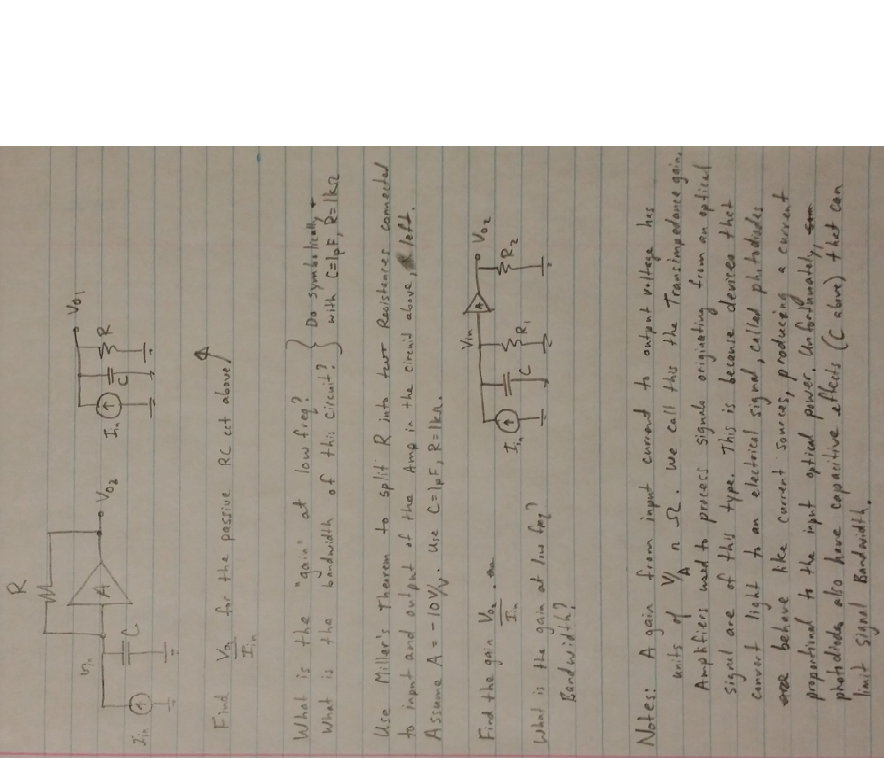 R
Vin A Vo2
C
Iin
Vo1
Iin C R
Find Vo1/Iin for the passive RC cct above
What is the "gain" at low freq? } Do symbolically +
What is the bandwidth of this circuit? } with C=1pF, R=1kΩ
Use Miller's Theorem to split R into two Resistances connected
to input and output of the Amp in the circuit above, left.
Assume A = -10 V/V. Use C=1pF, R=1kΩ.
Find the gain Vo2/Iin.
Vin A Vo2
Iin C R1 R2
What is the gain at low freq?
Bandwidth?
Notes: A gain from input current to output voltage has
units of V/A n Ω. We call this the Transimpedance gain.
Amplifiers used to process signals originating from an optical
signal are of this type. This is because devices that
convert light to an electrical signal, called photodiodes
behave like current sources, producing a current
proportional to the input optical power. Unfortunately,
photodiodes also have capacitive effects (C above) that can
limit signal Bandwidth.